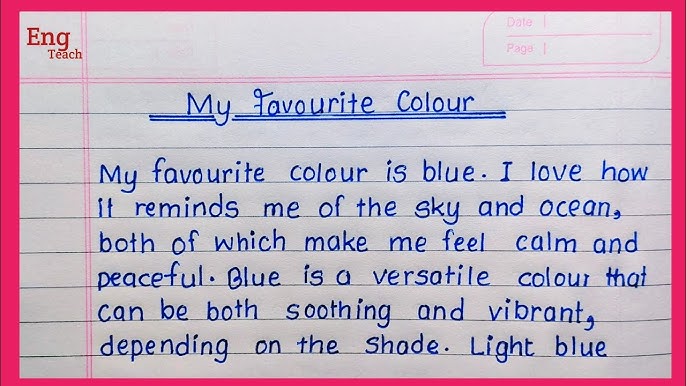 Eng
Teach
Date
Page
My Favourite Colour
My favourite colour is blue. I love how
it reminds me of the sky and ocean,
both of which make me feel calm and
peaceful. Blue is a versatile colour that
can be both soothing and vibrant,
depending on the shade. Light blue